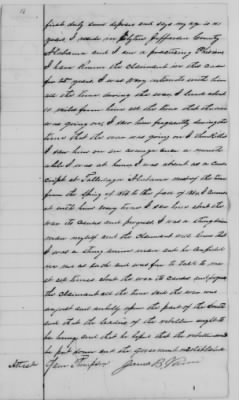 first duly sworn deposes and says my age is
years I reside in Jefferson County
Alabama and I am a practicing Physician
I have known the Claimant in this case
for 25 years. I was very intimate with him
all the time during the war. I lived about
10 miles from him all the time that the war
was going on. I saw him frequently during the
time that the war was going on I think
I saw him on an average once a month
while I was at home. I was about as a con-
script at Talladega Alabama most of the time
from the Spring of 186 to the fall of 186 I
with him every time I saw him about the
war its causes and progress. I was a strong Union
man myself and the Claimant well knew that
I was a strong union man and he
me as such and was free to talk to me
at all times about the war its causes and progress
the Claimant all the time said the war was
unjust and unholy upon the part of the South
and that the leaders of the rebellion ought to
be hung and that he hoped that the rebellion would
be put down and the Government
Attest